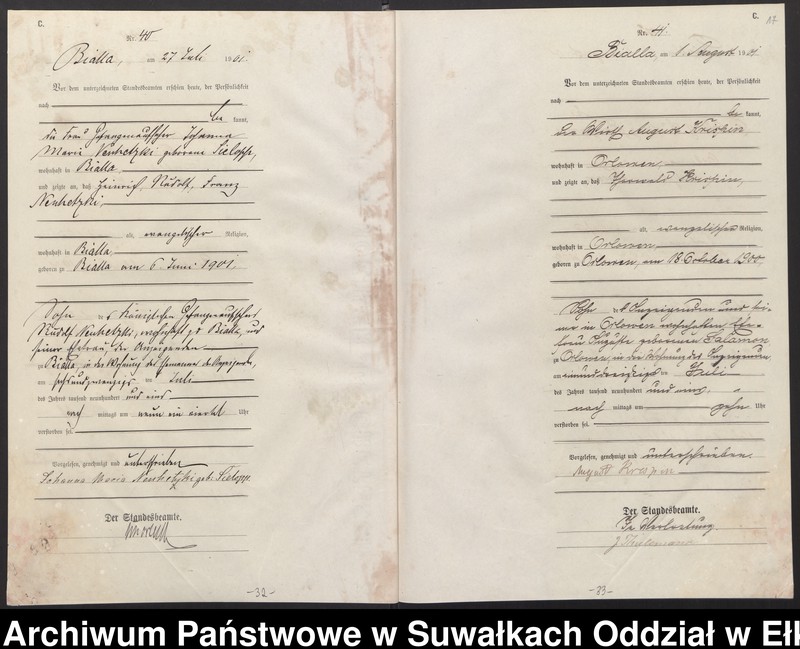 C.
Nr. 40
Bialla, am 27 Juli 1901.
Vor dem unterzeichneten Standesbeamten erschien heute, der Persönlichkeit
nach
be kannt,
die Frau Gefangenaufseher Johanna
Marie geborene
wohnhaft in Bialla
und zeigte an, daß Heinrich, Rudolf, Franz
alt, evangelischer Religion,
wohnhaft in Bialla
geboren zu Bialla am 6. Juni 1901,
Sohn des Königlichen Gefangenaufsehers
Rudolf wohnhaft zu Bialla, und
seiner Ehefrau, der Anzeigenden
zu Bialla, in der Wohnung des Ehemannes der Anzeigenden,
am sechsundzwanzigsten Juli
des Jahres tausend neunhundert und eins
nach mittags um neun ein viertel Uhr
verstorben sei.
Vorgelesen, genehmigt und unterschrieben
Johanna Maria geb.
Der Standesbeamte.
-32-
C.
Nr. 41.
Bialla, am 1. August 1901
Vor dem unterzeichneten Standesbeamten erschien heute, der Persönlichkeit
nach
be kannt,
der Wirth August Krispin
wohnhaft in Orlowen,
und zeigte an, daß Krispin,
alt, evangelischer Religion,
wohnhaft in Orlowen
geboren zu Orlowen, am 18. October 1900
Sohn des Anzeigenden und
in Orlowen wohnhaften Ehe-
frau Auguste geborenen Salamon
zu Orlowen, in der Wohnung des Anzeigenden
am einunddreißigsten Juli
des Jahres tausend neunhundert und eins,
nach mittags um zehn Uhr
verstorben sei.
Vorgelesen, genehmigt und unterschrieben.
August Krispin
Der Standesbeamte.
In Vertretung
-33-
Archiwum Państwowe w Suwałkach Oddział w Ełk